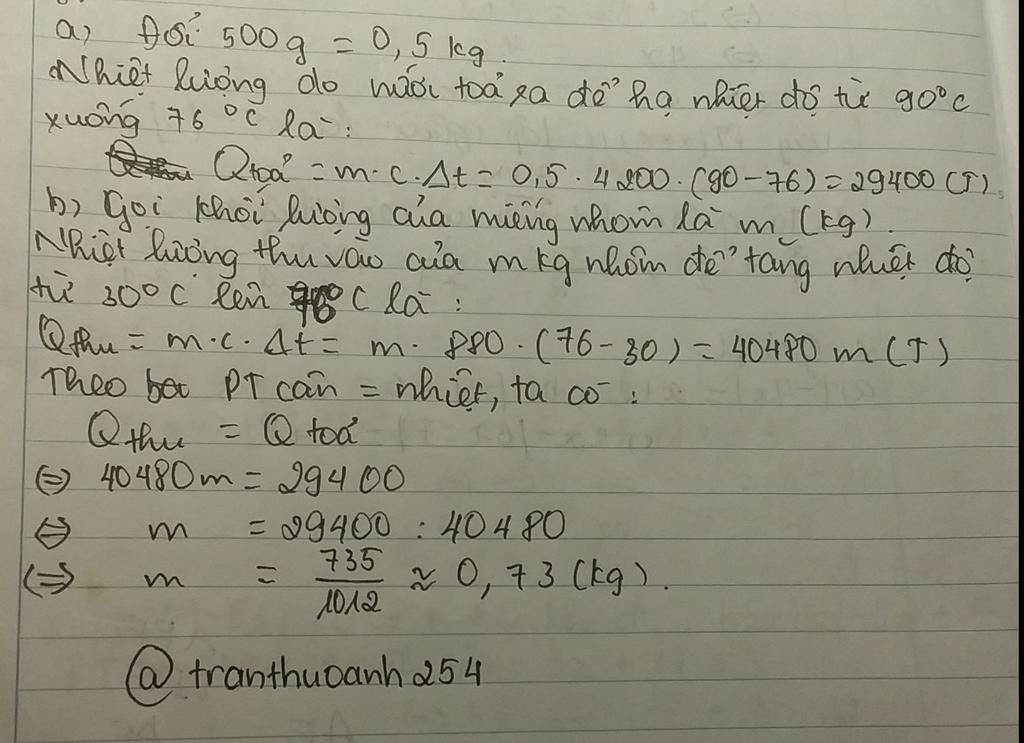 a, Đổi 500g = 0,5 kg.
Nhiệt lượng do nước toả ra để hạ nhiệt độ từ 90°C
xuống 76°C là:
Q toả = m.c.Δt = 0,5.4200.(90-76) = 29400 (J)
b, Gọi khối lượng của miếng nhôm là m (kg).
Nhiệt lượng thu vào của m kg nhôm để tăng nhiệt độ
từ 30°C lên 76°C là:
Q thu = m.c.Δt = m.880.(76-30) = 40480 m (J)
Theo PT cân = nhiệt, ta có:
Q thu = Q toả
⇔ 40480m = 29400
⇔ m = 29400 : 40480
⇔ m = 735/1012 ≈ 0,73 (kg).
@tranthuoanh254